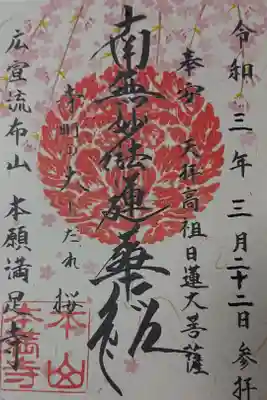 令和三年三月二十二日参拝
奉安 天拝高祖日蓮大菩薩
南無妙法蓮華経
赤門の大しだれ桜
広宣流布山 本願満足寺
本山
本満寺